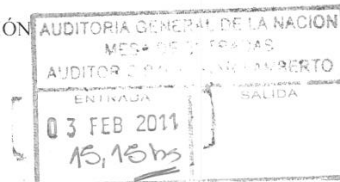 ÓN
AUDITORIA GENERAL DE LA NACION
MESA DE ENTRADAS
AUDITOR
ENTRADA SALIDA
03 FEB 2011
15,15hs